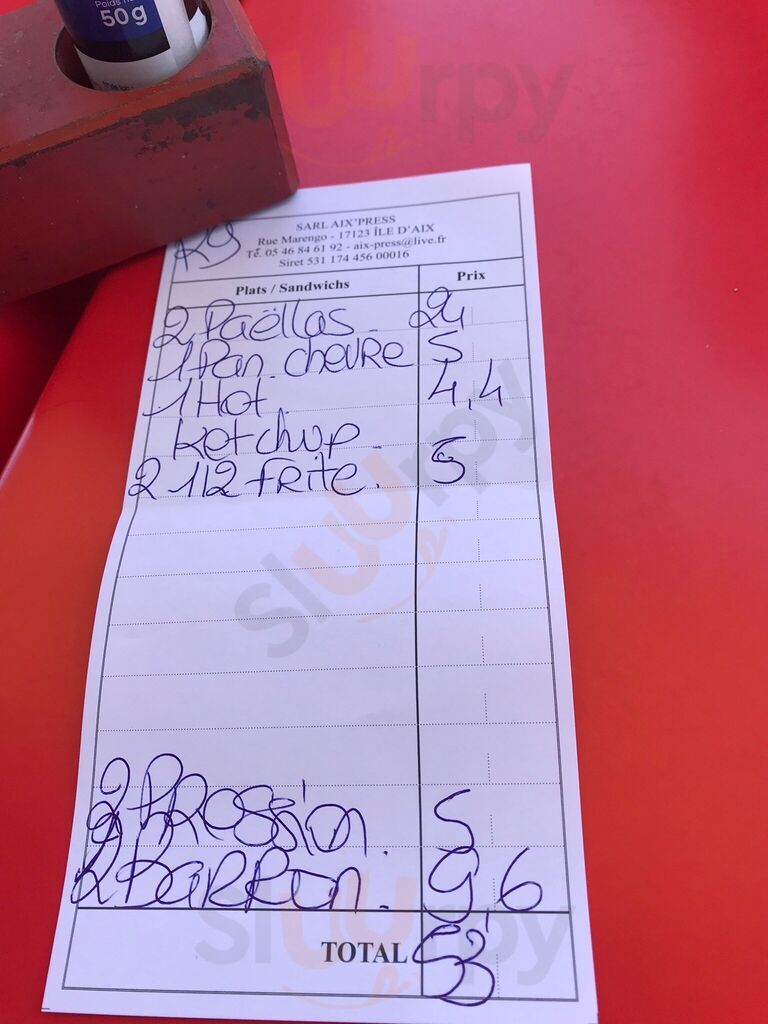 Poids
50g
SARL AIX'PRESS
Rue Marengo - 17123 ÎLE D'AIX
Té. 05 46 84 61 92 - aix-press@live.fr
Siret 531 174 456 00016
Plats / Sandwichs Prix
2 Paëllas. 24
1 Pan. chevre 5
1 Hot. 4,4
Ketchup.
2 1/2 frite. 5
2 Pression. 5
2 Barron. 9,6
TOTAL 53
Sluurpy
Sluurpy
Sluurpy